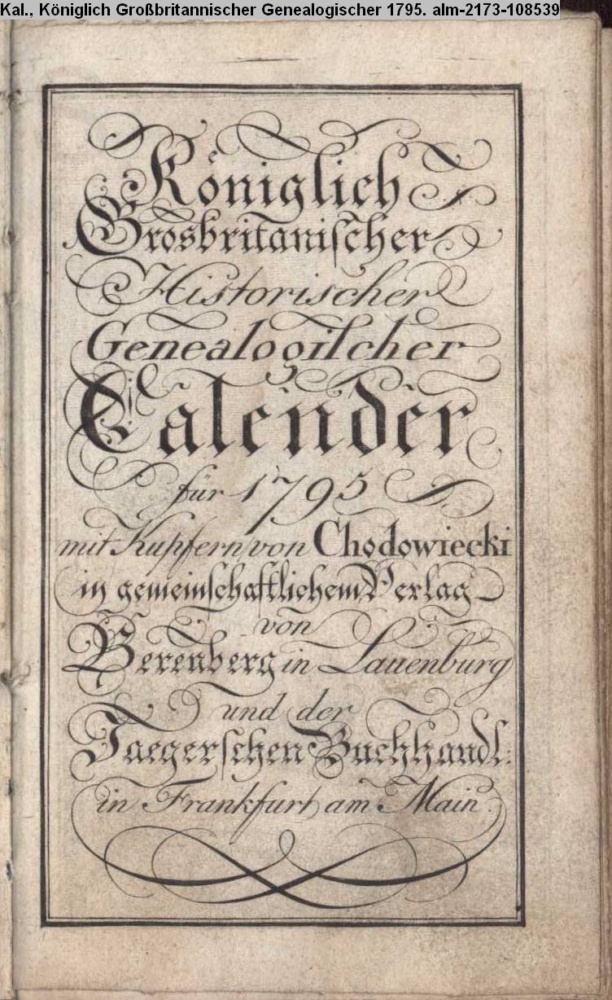 Kal., Königlich Großbritannischer Genealogischer 1795. alm-2173-108539
Königlich
Grosbritanischer
Historischer
Genealogischer
Calender
für 1795
mit Kupfern von Chodowiecki
in gemeinschaftlichem Verlag
von
Berenberg in Lauenburg
und der
Jaegerschen Buchhandl:
in Frankfurt am Main.